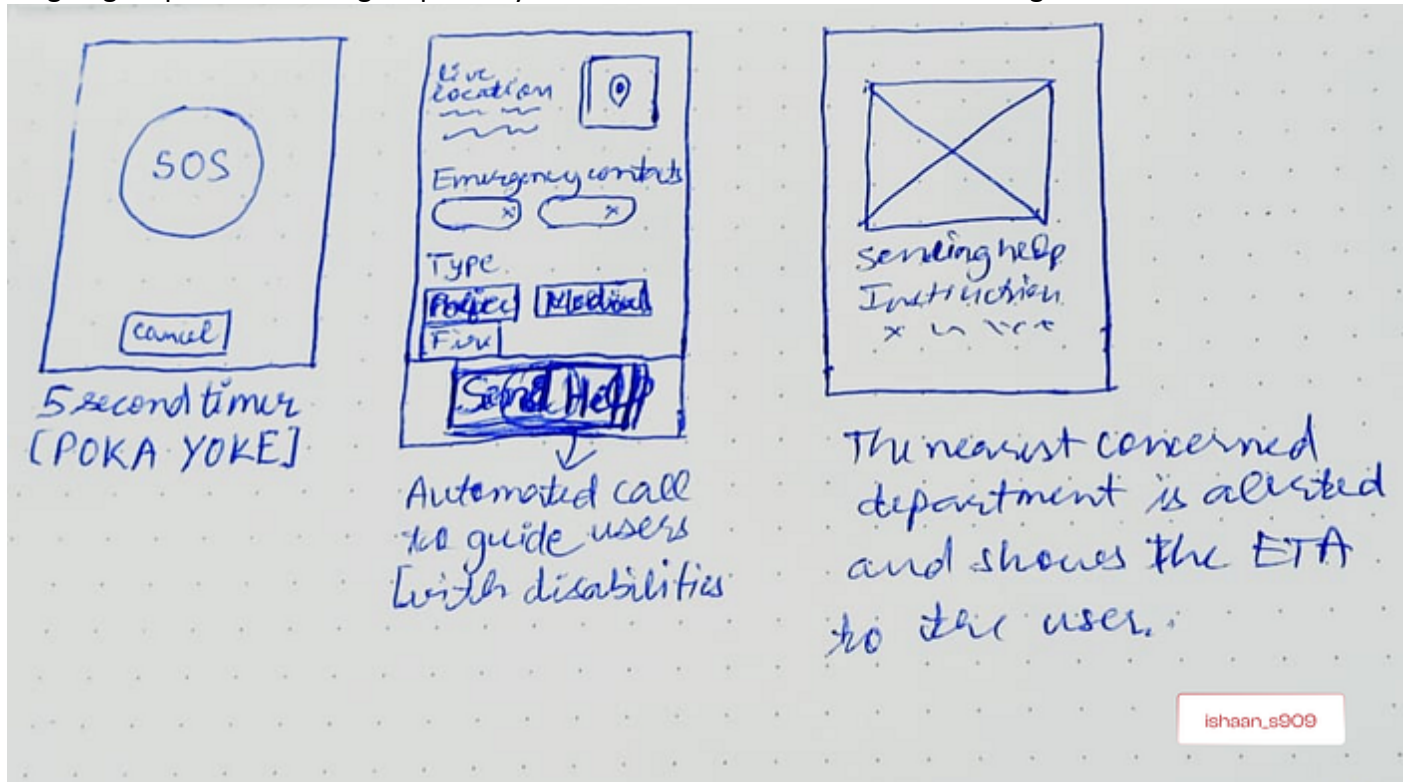 SOS
Cancel
5 second timer
[POKA YOKE]
Live
location
Emergency contacts
x x
Type
Police Medical
Fire
Send Help
Automated call
to guide users
[with disabilities
Sending help
Instruction
The nearest concerned
department is alerted
and shows the ETA
to the user.
ishaan_s909